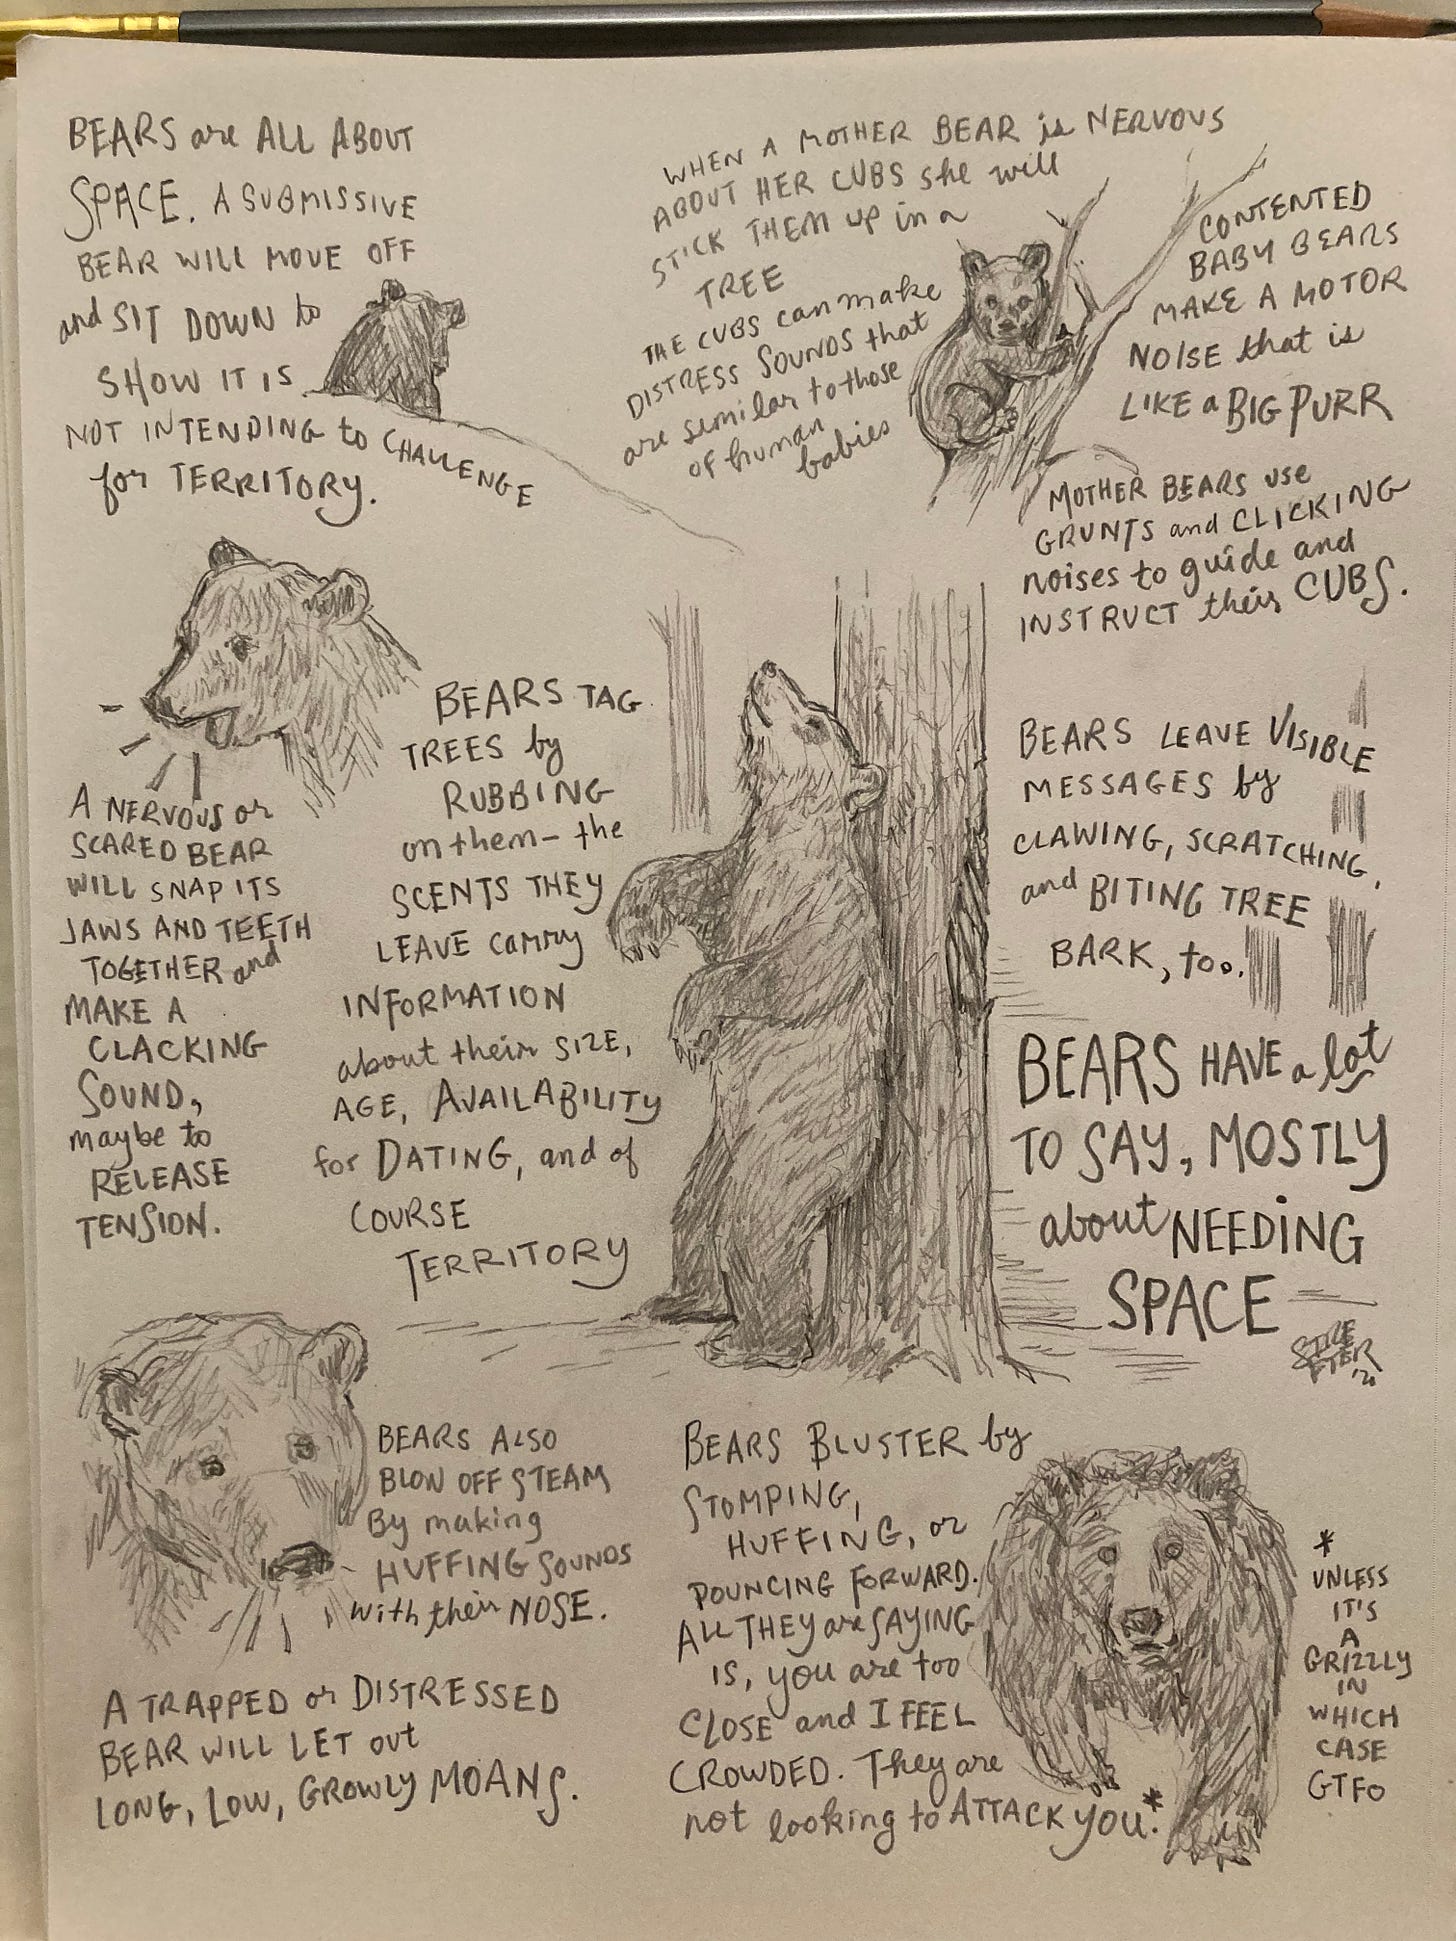 BEARS are ALL ABOUT
SPACE. A SUBMISSIVE
BEAR WILL MOVE OFF
and SIT DOWN to
SHOW IT IS
NOT INTENDING to CHALLENGE
for TERRITORY.
WHEN A MOTHER BEAR is NERVOUS
ABOUT HER CUBS she will
STICK THEM up in a
TREE
THE CUBS can make
DISTRESS SOUNDS that
are similar to those
of human
babies
CONTENTED
BABY BEARS
MAKE A MOTOR
NOISE that is
LIKE a BIG PURR
MOTHER BEARS use
GRUNTS and CLICKING
noises to guide and
INSTRUCT their CUBS.
A NERVOUS or
SCARED BEAR
WILL SNAP ITS
JAWS AND TEETH
TOGETHER and
MAKE A
CLACKING
SOUND,
maybe to
RELEASE
TENSION.
BEARS TAG
TREES by
RUBBING
on them - the
SCENTS THEY
LEAVE carry
INFORMATION
about their SIZE,
AGE, AVAILABILITY
for DATING, and of
COURSE
TERRITORY
BEARS LEAVE VISIBLE
MESSAGES by
CLAWING, SCRATCHING,
and BITING TREE
BARK, too.
BEARS HAVE a lot
TO SAY, MOSTLY
about NEEDING
SPACE
BEARS ALSO
BLOW OFF STEAM
By making
HUFFING SOUNDS
with their NOSE.
A TRAPPED or DISTRESSED
BEAR WILL LET OUT
LONG, LOW, GROWLY MOANS.
BEARS BLUSTER by
STOMPING,
HUFFING, or
POUNCING FORWARD.
ALL THEY are SAYING
IS, you are too
CLOSE and I FEEL
CROWDED. They are
not looking to ATTACK YOU.*
*
UNLESS
IT'S
A
GRIZZLY
IN
WHICH
CASE
GTFO